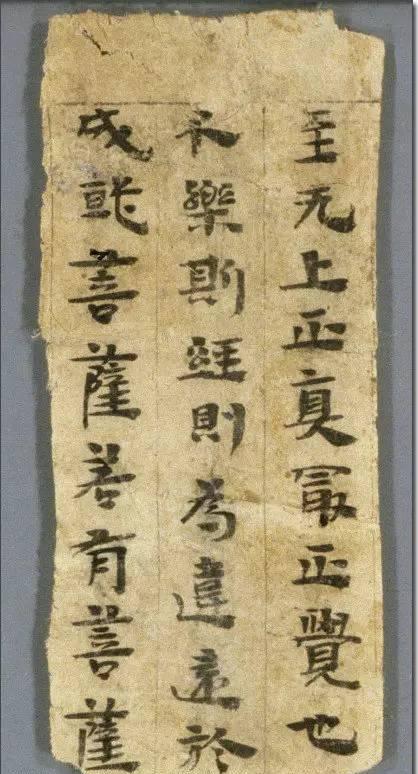 至无上正真冣正覺也
不樂則經則為違遠於
成就菩薩若有菩薩